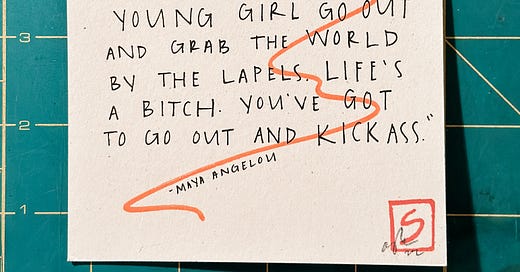 YOUNG GIRL GO OUT
AND GRAB THE WORLD
BY THE LAPELS. LIFE'S
A BITCH. YOU'VE GOT
TO GO OUT AND KICK ASS."
-MAYA ANGELOU
S
3
2
1